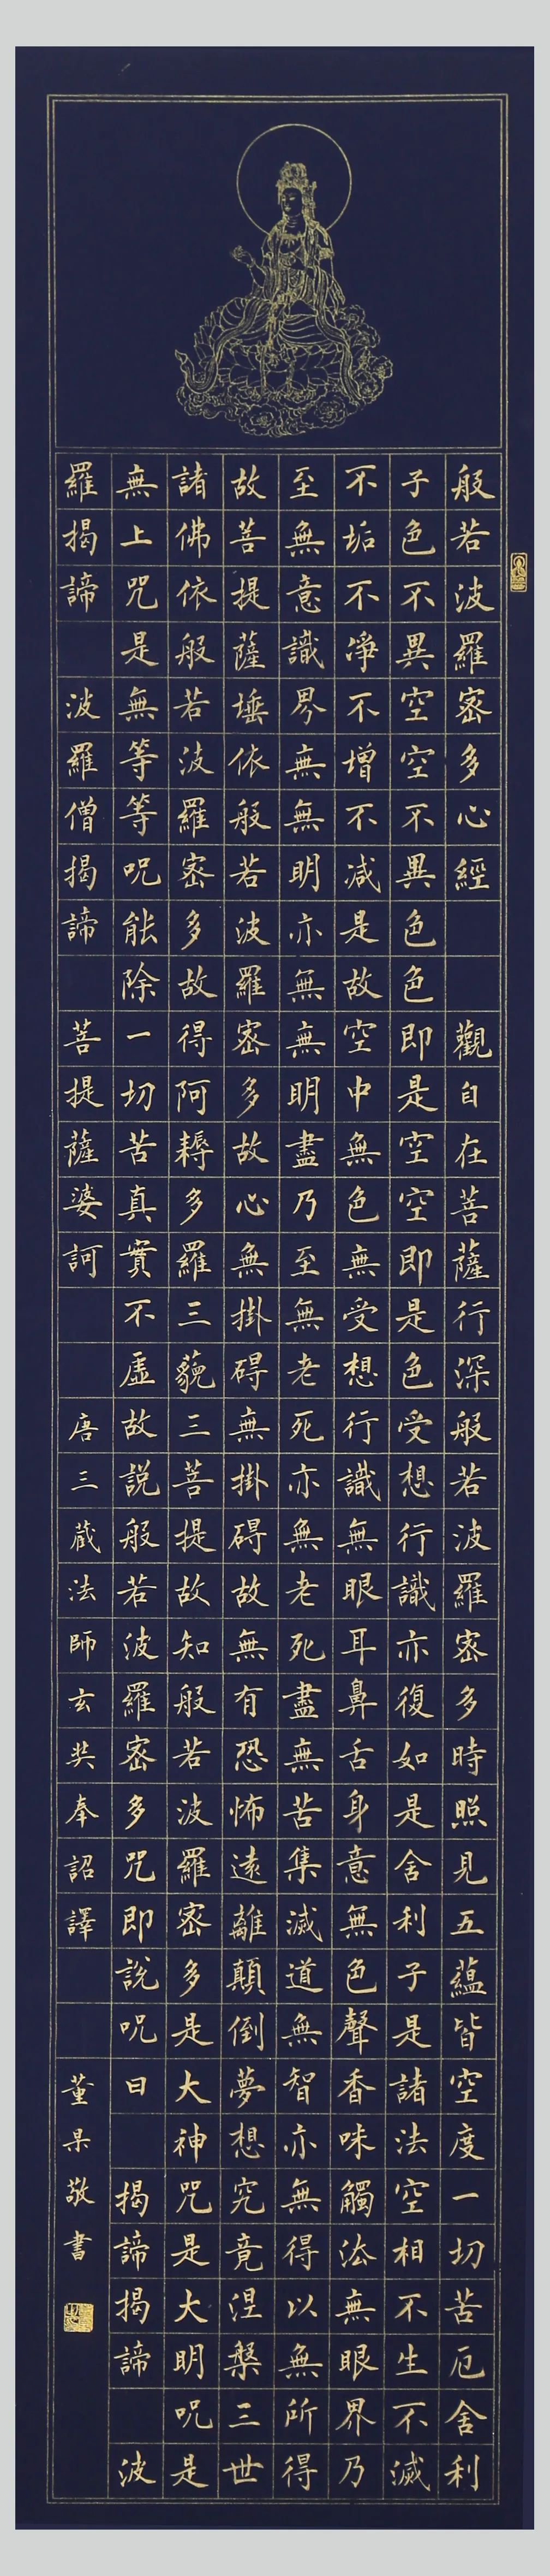 般若波羅密多心經觀自在菩薩行深般若波羅密多時照見五蘊皆空度一切苦厄舍利
子色不異空空不異色色即是空空即是色受想行識亦復如是舍利子是諸法空相不生不滅
不垢不淨不增不减是故空中無色無受想行識無眼耳鼻舌身意無色聲香味觸法無眼界乃
至無意識界無無明亦無無明盡乃至無老死亦無老死盡無苦集滅道無智亦無得以無所得
故菩提薩埵依般若波羅密多故心無掛碍無掛碍故無有恐怖遠離顛倒夢想究竟涅槃三世
諸佛依般若波羅密多故得阿耨多羅三藐三菩提故知般若波羅密多是大神咒是大明咒是
無上咒是無等等呪能除一切苦真實不虛故說般若波羅密多咒即說呪曰 揭諦揭諦 波
羅揭諦 波羅僧揭諦 菩提薩婆訶 唐三藏法師玄奘奉詔譯 董杲敬書